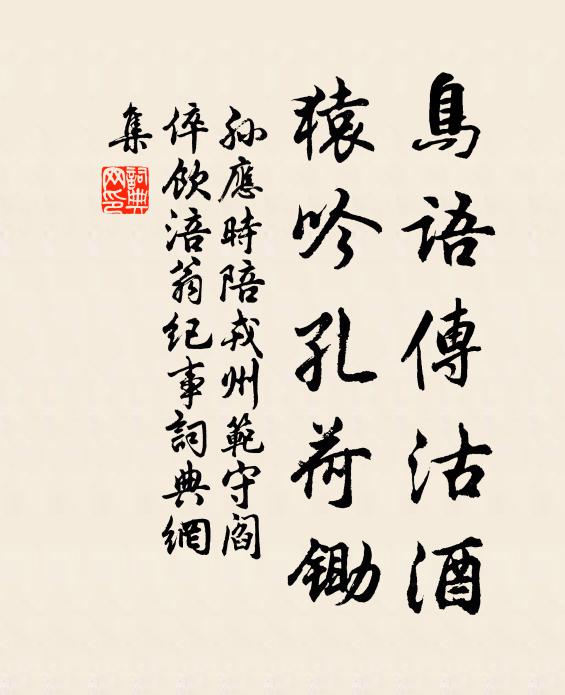 鳥語傳沽酒
猿吟孔荷鋤
孫應時陪戎州範守閻
倅飲涪翁紀事詞典網
集
詞典
網印